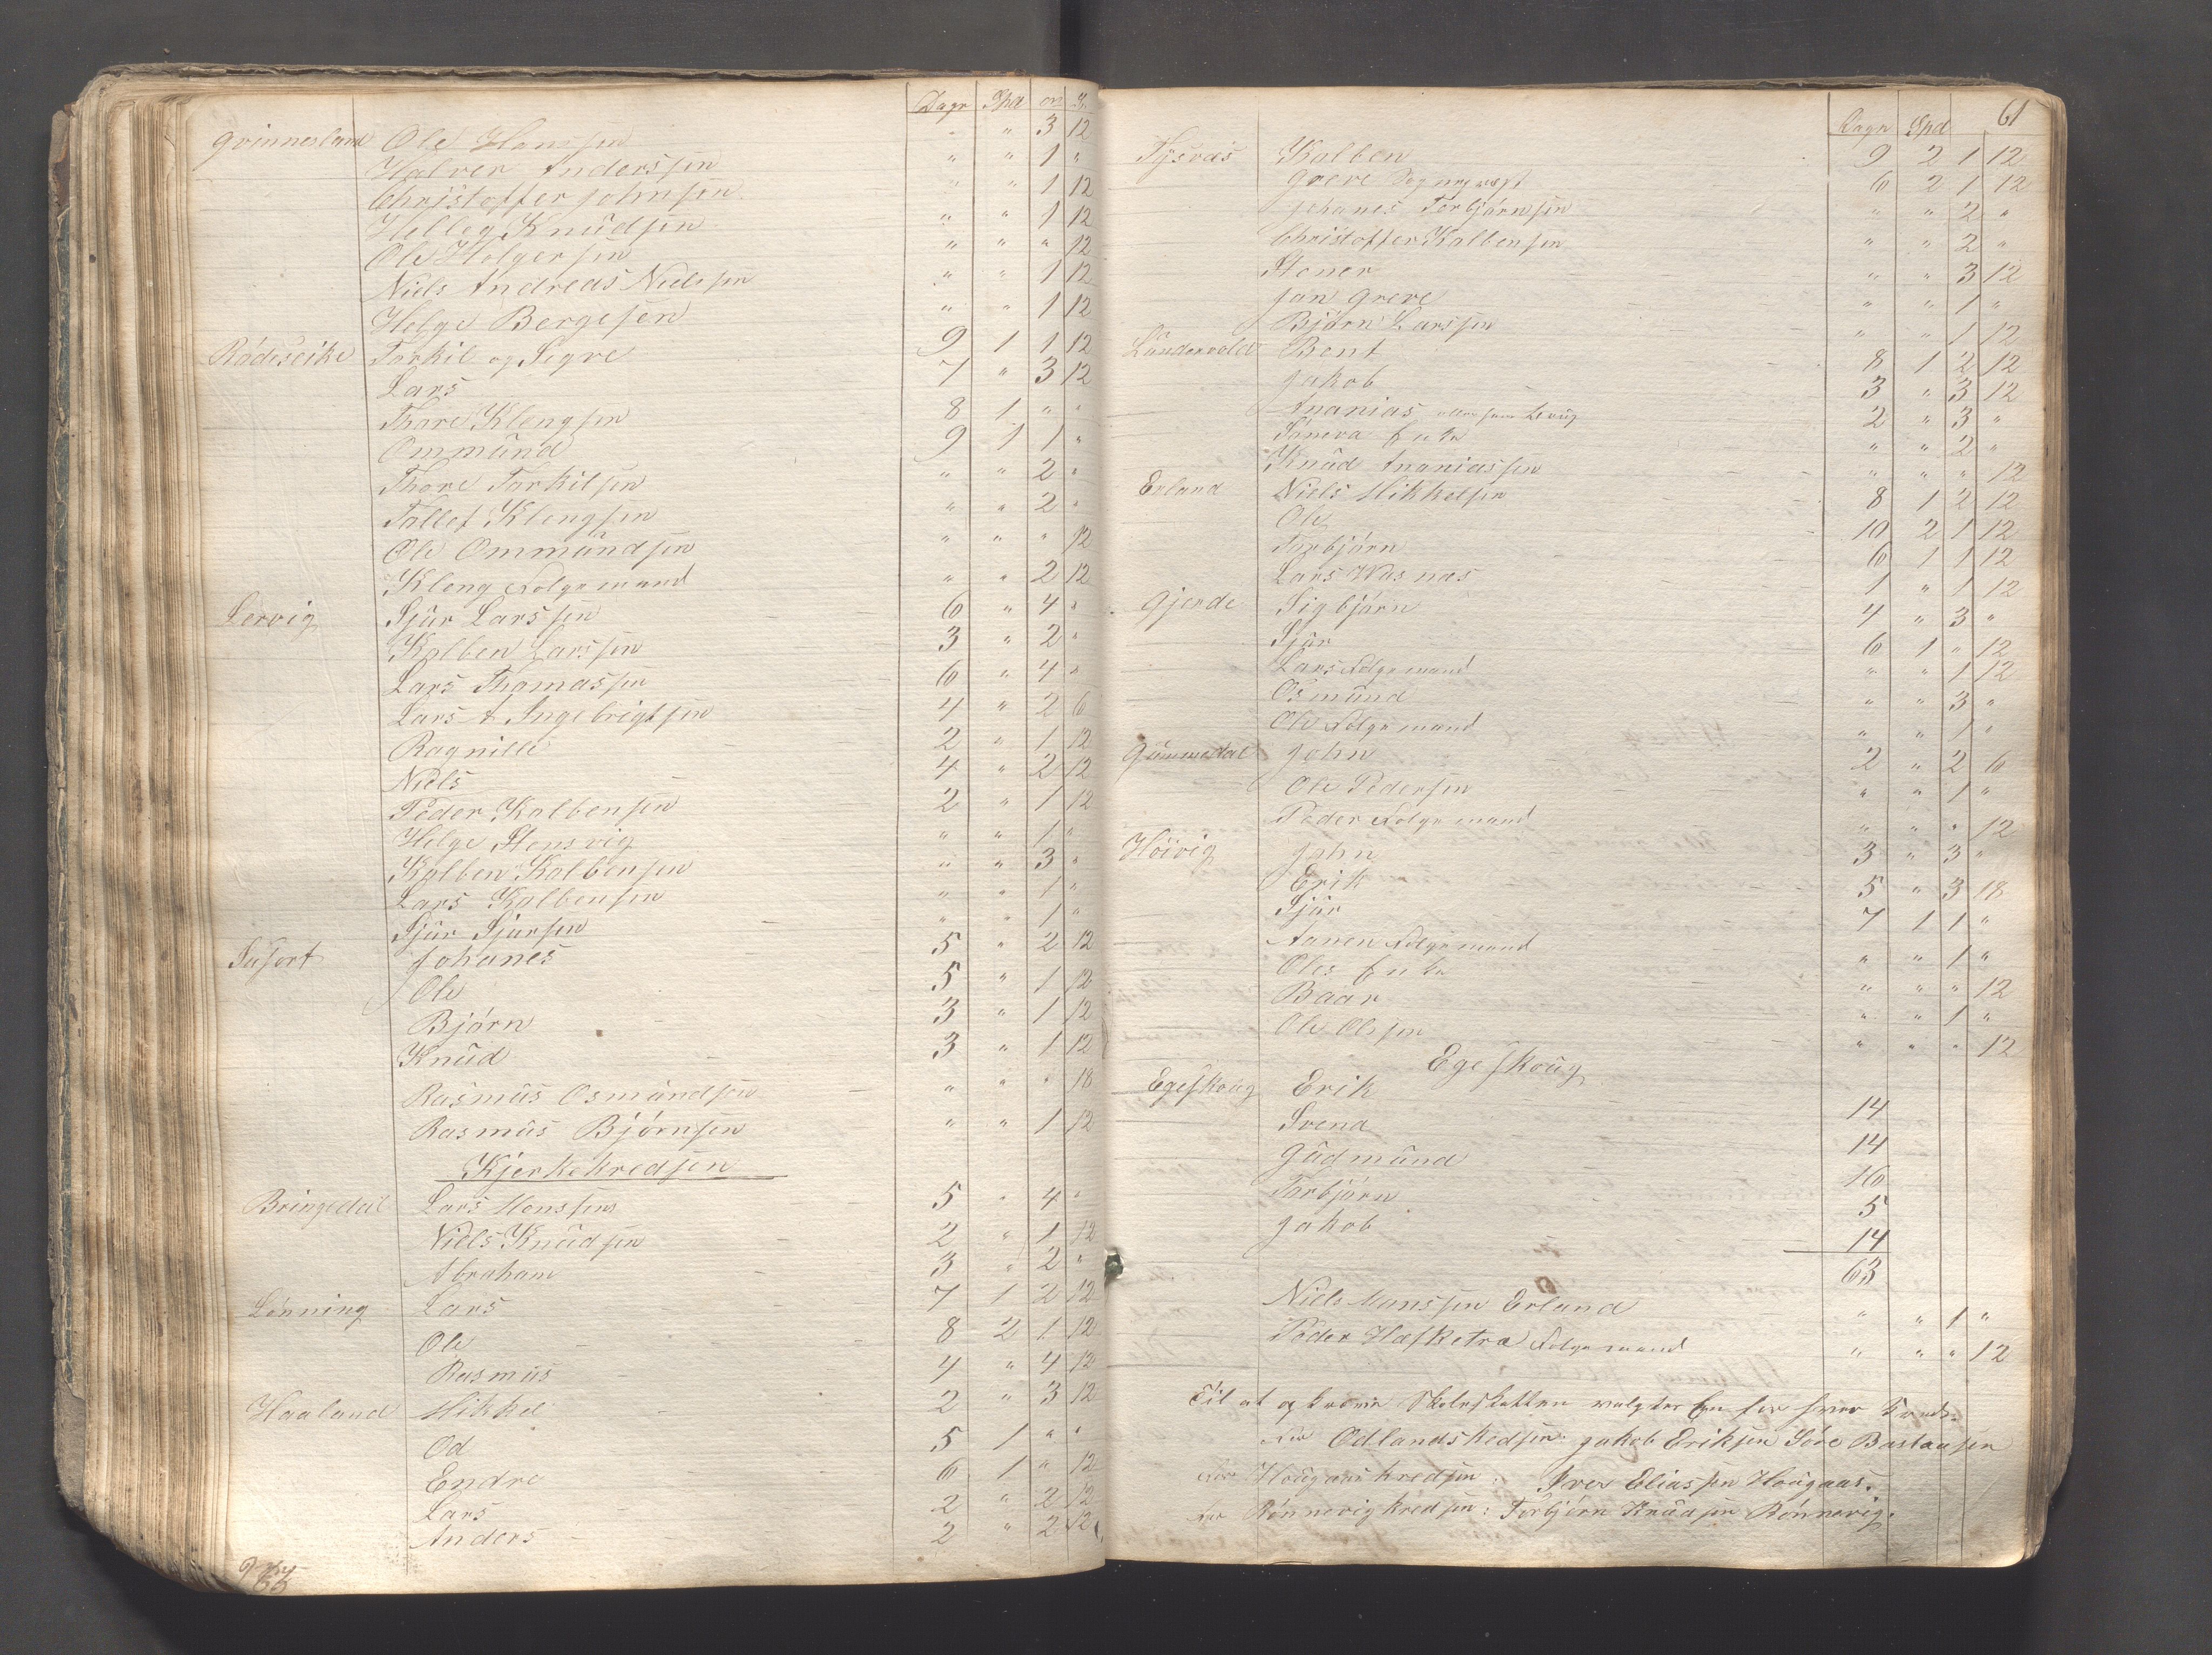 Dagr Spd ort ß
Grinnesland Ole Hanssen " " 3 12
Halver Anderssen " " 1 "
Christoffer Johnsen " " 1 12
Helleg Knudsen " " 1 12
Ole Holgersen " " " 12
Niels Andreas Nielssen " " 1 12
Helge Bergesen " " 1 12
Rådeseike Tarkil og Segve 9 1 1 12
Lars 7 " 3 12
Thore Klengsen 8 1 " "
Ommund 9 1 1 "
Thore Tarkilsen " " 2 "
Tollef Klengsen " " 2 "
Ole Ommundsen " " " 12
Kleng Folgemand " " 2 12
Lervig Sjur Larssen 6 " 4 "
Kolben Larssen 3 " 2 "
Lars Thomassen 6 " 4 "
Lars A Ingebrigtsen 4 " 2 6
Ragnille 2 " 1 12
Niels 4 " 2 12
Peder Kolbensen 2 " 1 12
Helge Stensvig " " 1 "
Kolben Kolbensen " " 3 "
Lars Kolbensen " " 1 "
Sjur Sjursen " " 1 "
Susort Johanes 5 " 2 12
Ole 5 " 1 12
Bjørn 3 " 1 12
Knud 3 " 1 12
Rasmus Osmundsen " " " 18
Rasmus Bjørnsen " " 1 12
Kjerkekredsen
Bringedal Lars Monssen 5 " 4 "
Niels Knudsen 2 " 1 12
Abraham 3 " 2 "
Lønning Lars 7 1 2 12
Ole 8 2 1 12
Rasmus 4 " 4 12
Haaland Mikkel 2 " 3 12
Od 5 1 " "
Endre 6 1 " 12
Lars 2 " 2 12
Anders 2 " 2 12
61
Dagr Spd
Tysvas Kolben 9 2 1 12
Greve 6 2 1 12
Johanes Torbjørnsen " " 2 "
Christoffer Kolbensen " " 2 "
Stener " " 3 12
Jan Greve " " 1 "
Bjørn Larssen " " 1 12
Lundervold Bent 8 1 2 12
Jakob 3 " 3 12
Ananias 2 " 3 "
Sáneva Enke " " 2 "
Knud Ananiassen " " " 12
Erland Niels Mikkelsen 8 1 2 12
Ole 10 2 1 12
Torbjørn 6 1 1 12
Lars Wasnas 1 " 1 12
Gjerde Sigbjørn 4 " 3 "
Sjur 6 1 " 12
Lars Folgemand " " 1 12
Osmund " " 3 "
Ole Folgemand " " 1 "
Gummedal John 2 " 2 6
Ole Pedersen " " 1 "
Peder Folgemand " " " 12
Høivig John 3 " 3 "
Erik 5 " 3 18
Sjur 7 1 1 "
Aanen Folgemand " " 1 "
Oles Enke " " " 12
Baar " " 1 "
Ole Olssen " " " 12
Egeskoug
Egeskoug Erik 14
Svend 14
Gudmund 16
Torbjørn 5
Jakob 14
63
Niels Monssen Erland " " 1 "
Peder Hasketræ Folgemand " " " 12
Til at opkræve Skoleskatten valgtes En for hver Kreds.
For Odlandskredsen: Jakob Eriksen Søre Bustausen
For Hougaaskredsen: Iver Eliassen Hougaas.
For Rønnevigkredsen: Torbjørn Knudsen Rønnevig.